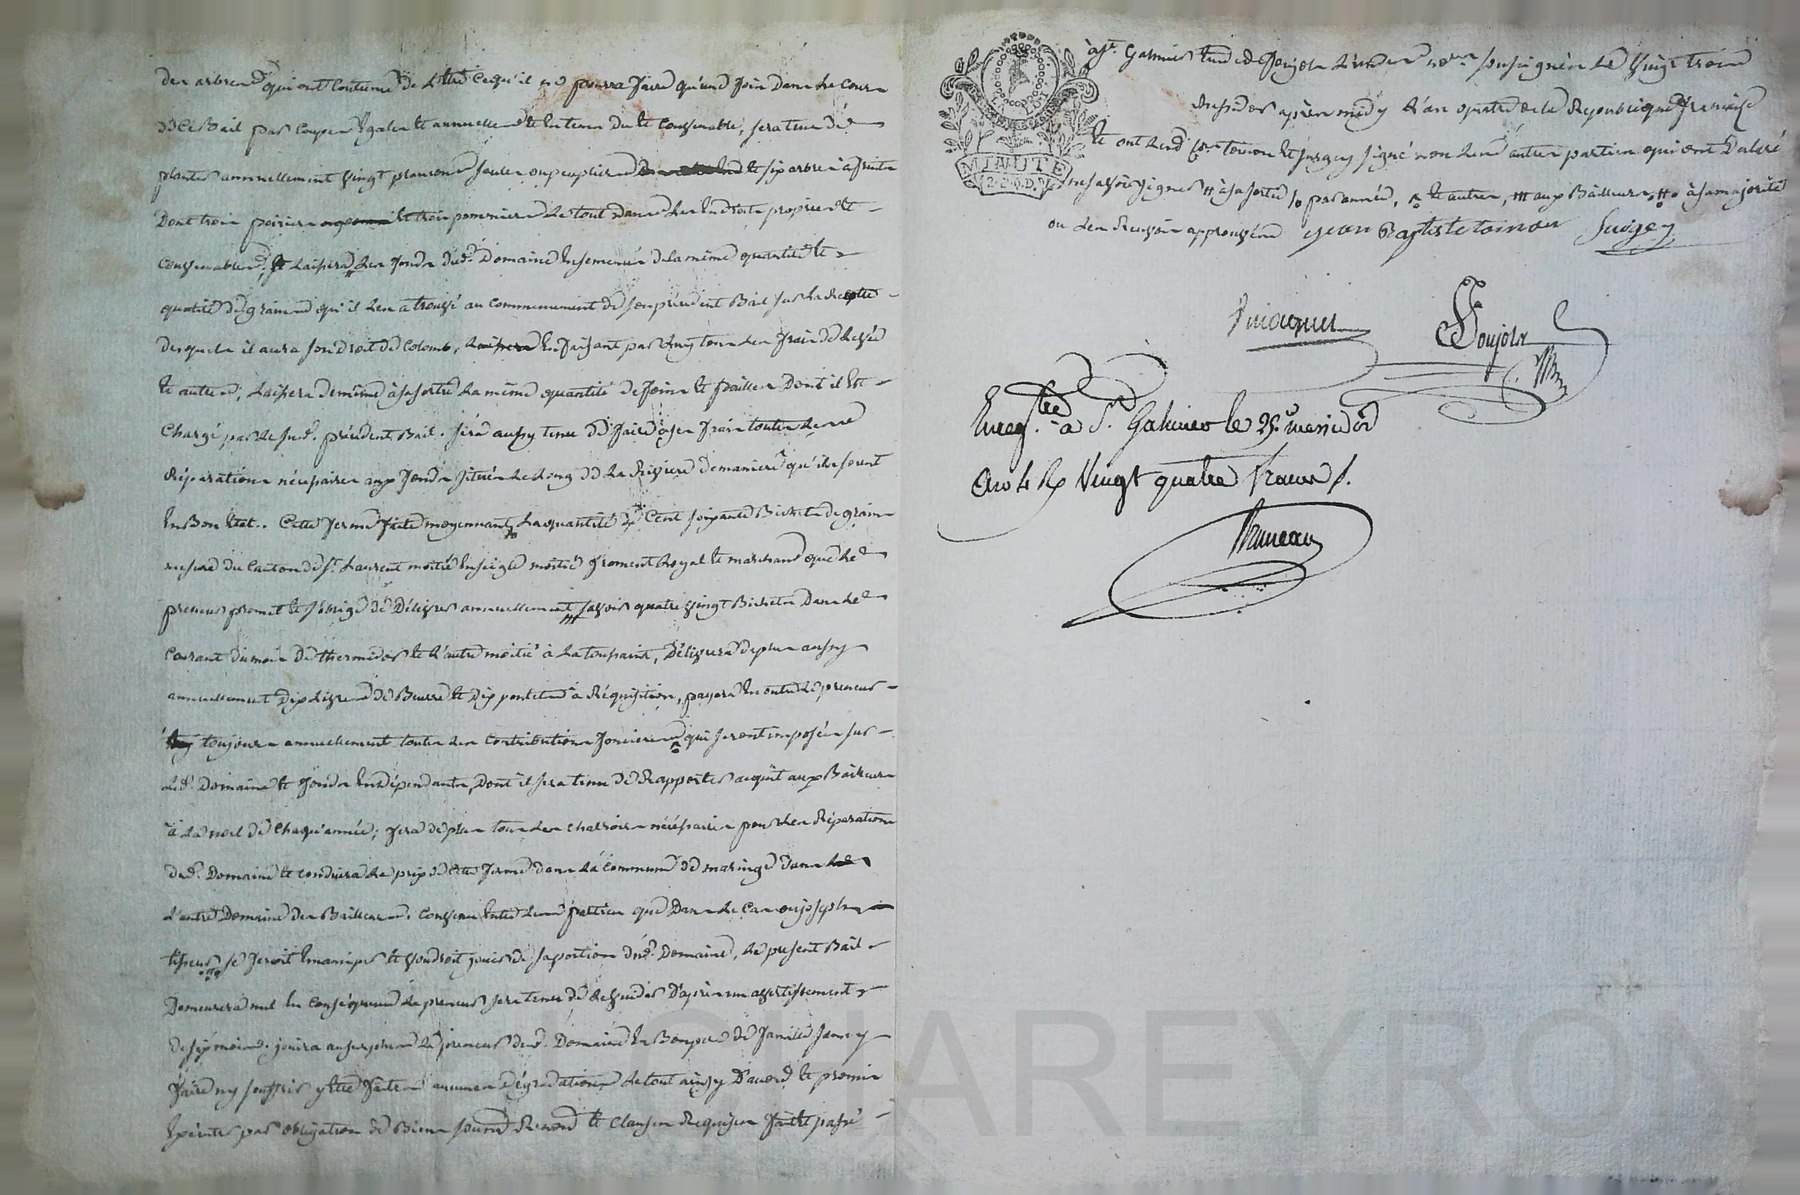 des arbres qui ont coutume de l'être ce qu'il ne pourra faire qu'une fois dans le cours
de ce Bail par coupes égales et annuelles et en tems dû et convenable, sera tenu de
planter annuellement vingt plansons saules ou peupliers et six arbres à fruits
dont trois poiriers et trois pommiers le tout dans les endroits propres et
convenables; laissera les fonds dud. Domaine ensemencés de la même quantité et
qualité de grains qu'il les a trouvé au commencement de son précédent Bail sur la recolte
desquels il aura son droit de colons, en faisant par luy tous les frais de levée
et autres; laissera de même à sa sortie la même quantité de foins et pailles dont il est
chargé par le sud. précédent Bail. sera aussy tenu de faire à ses frais toutes les
réparations nécessaires aux fonds situés le long de la Rivière de manière qu'ils soient
en Bon état.. Cette ferme faite moyennant la quantité de cent soixante Bichets de grains
mesure du canton de St. Laurent moitié en seigle moitié froment loyal et marchand que le
preneur promet et s'oblige de délivrer annuellement, savoir quatre vingt Bichets dans le
courant du mois de thermidor et l'autre moitié à la toussaint, délivrera de plus aussy
annuellement dix livres de Beurre et dix poulets à réquisition, payera en outre le preneur
toujours annuellement toutes les contributions foncieres qui seront imposées sur
led. Domaine et fonds en dépendants, dont il sera tenu de rapporter acquit aux Bailleurs
à la noel de chaque année; fera de plus tous les charrois nécessaires pour les réparations
dud. Domaine et conduira le prix de cette ferme dans la commune de maringe dans
l'autre Domaine des Bailleurs. Convenu entre les parties que dans le cas où joseph
tisseur se feroit émanciper et voudroit jouir de sa portion dud. Domaine, le present Bail
demeurera nul en conséquence le preneur sera tenu de le vuider d'après un avertissement
de six mois; jouira au surplus le preneur dud. Domaine en Bon père de famille sans y
faire ny souffrir y être faites aucunes dégradations le tout ainsy d'accord et promis
exécuter par obligation de Biens soumis Renoncé et clauses Requises fait et passé
à St. Galmier étude de Poujols l'un des nores. soussignés le vingt trois
messidor après midy l'an quatre de la République française
et ont lesd. tournon et surgey signé non les autres parties qui ont déclaré
ne savoir signer # à sa sortie, par année, et autres, aux Bailleurs, à sa majorité
ou les Renvois approuvés jean Baptiste tournon Surgey
Poujols
MINUTE
Enregtré à St. Galmier le 25. messidor
an 4 Rx Vingt quatre francs /.
Bruneau